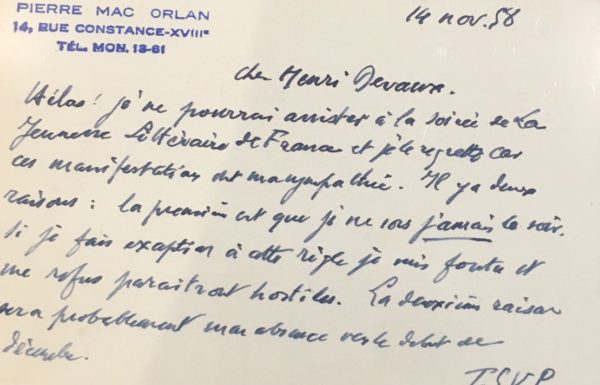 PIERRE MAC ORLAN
14, RUE CONSTANCE-XVIIIe
TÉL. MON. 13-61
14 nov. 58
cher Henri Devaux.
Hélas! je ne pourrai assister à la soirée de La
Jeunesse Littéraire de France et je le regrette car
ces manifestations ont ma sympathie. Il y a deux
raisons : la première est que je ne sors jamais le soir.
Si je fais exception à cette règle je suis foutu et
me refus paraitront hostiles. La deuxième raison
sera probablement mon absence vers le début de
décembre.
TSVP